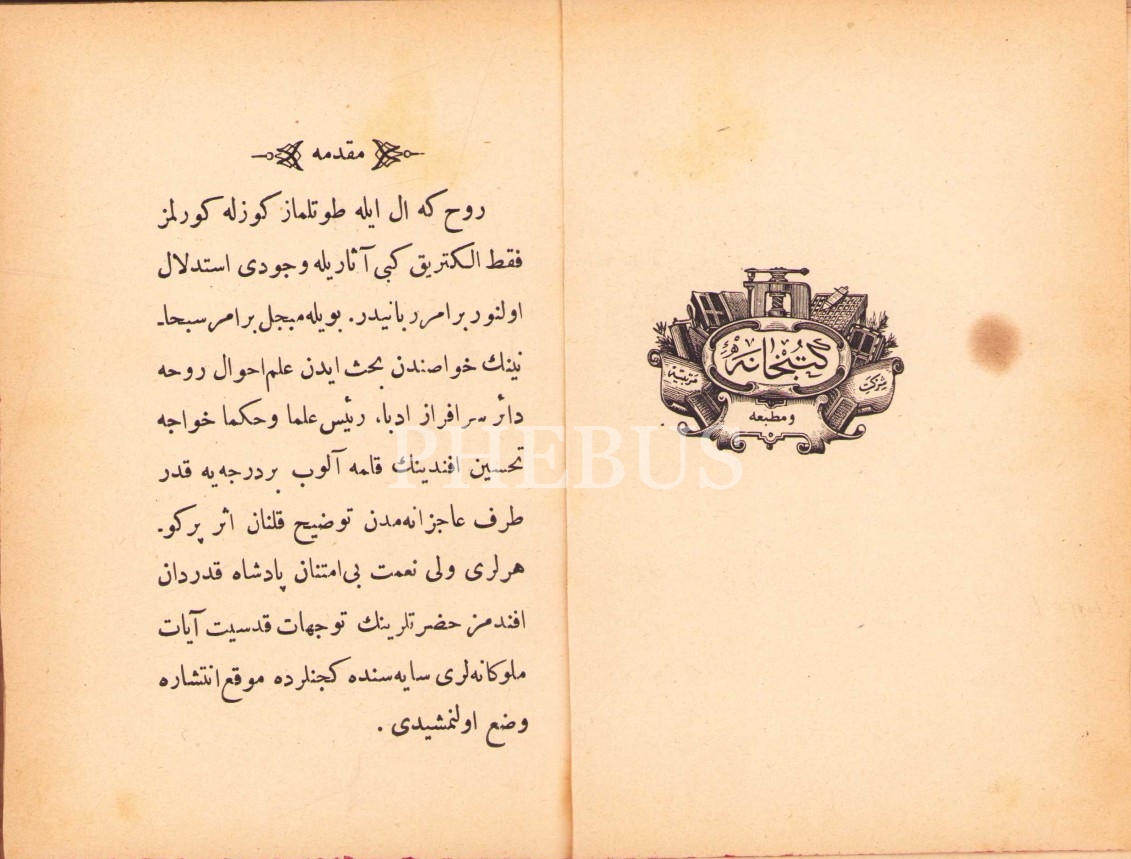 كتبخانه
شركت
مرتبیه
و مطبعه
مقدمه
روح كه ال ایله طوتلماز كوزله كورلمز
فقط الكتریق كبی آثاریله وجودی استدلال
اولنور بر امر ربانیدر. بویله مبجل بر امر سبحا-
نینك خواصندن بحث ایدن علم احوال روحه
دائر سرافراز ادبا، رئیس علما وحكما خواجه
تحسین افندینك قلمه آلوب بر درجه‌یه قدر
طرف عاجزانه‌مدن توضیح قلنان اثر پر كو-
هرلری ولی نعمت بی‌امتنان پادشاه قدردان
افندمز حضرتلرینك توجهات قدسیت آیات
ملوكانه‌لری سایه‌سنده كچنلرده موقع انتشاره
وضع اولنمشیدی .
PHEBUS